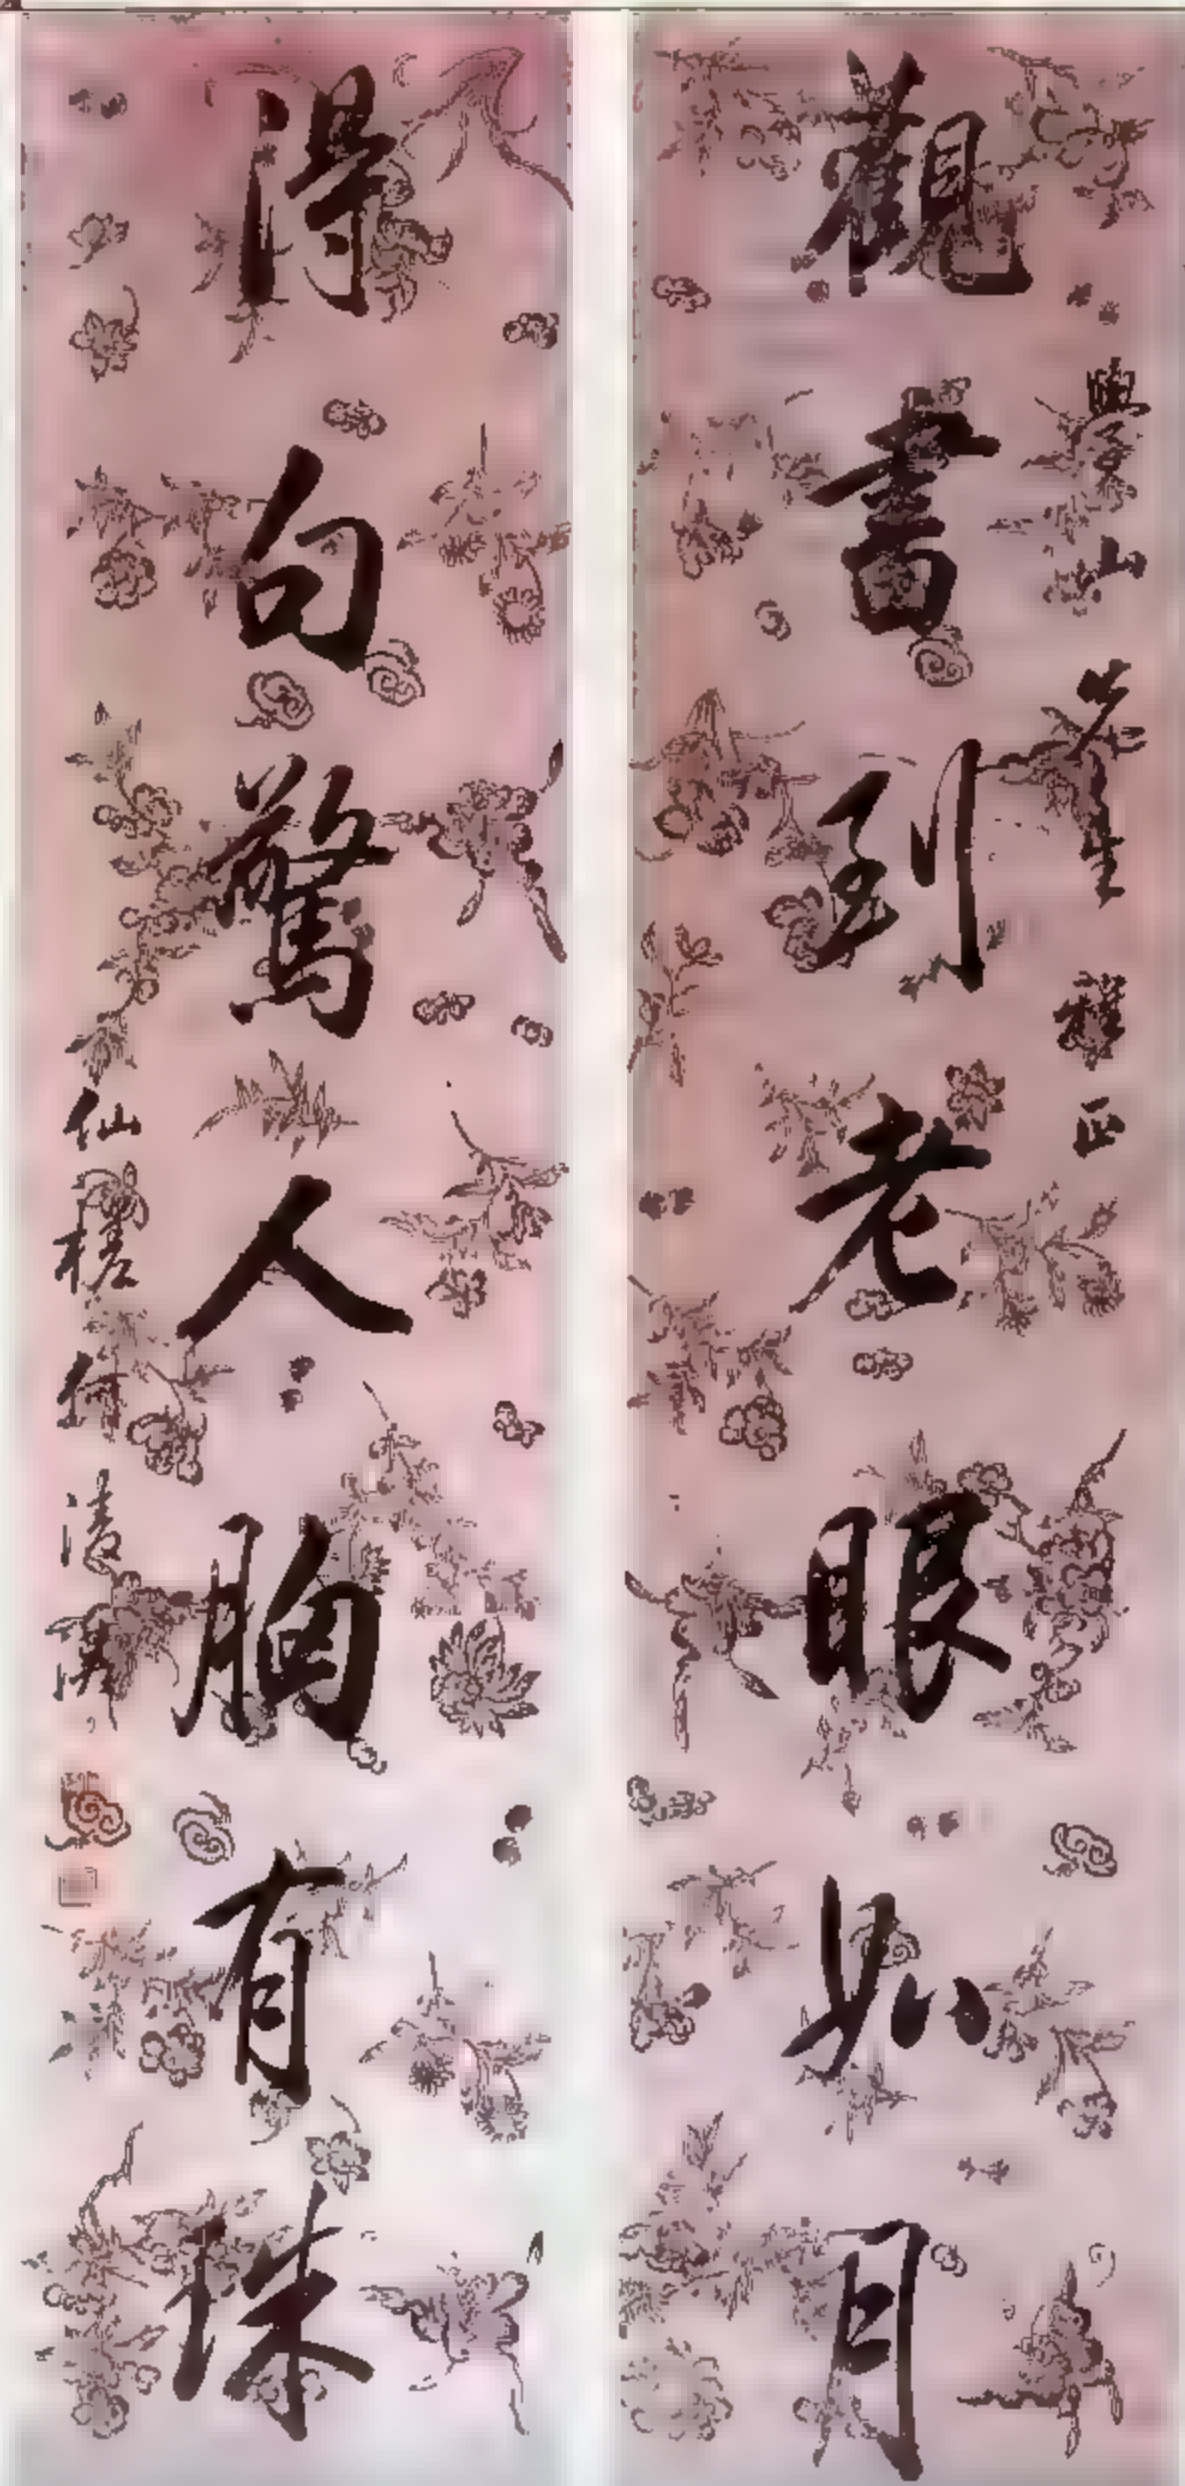 觀書到老眼如月
山先生 正
得句驚人胸有珠
仙槎何淩漢